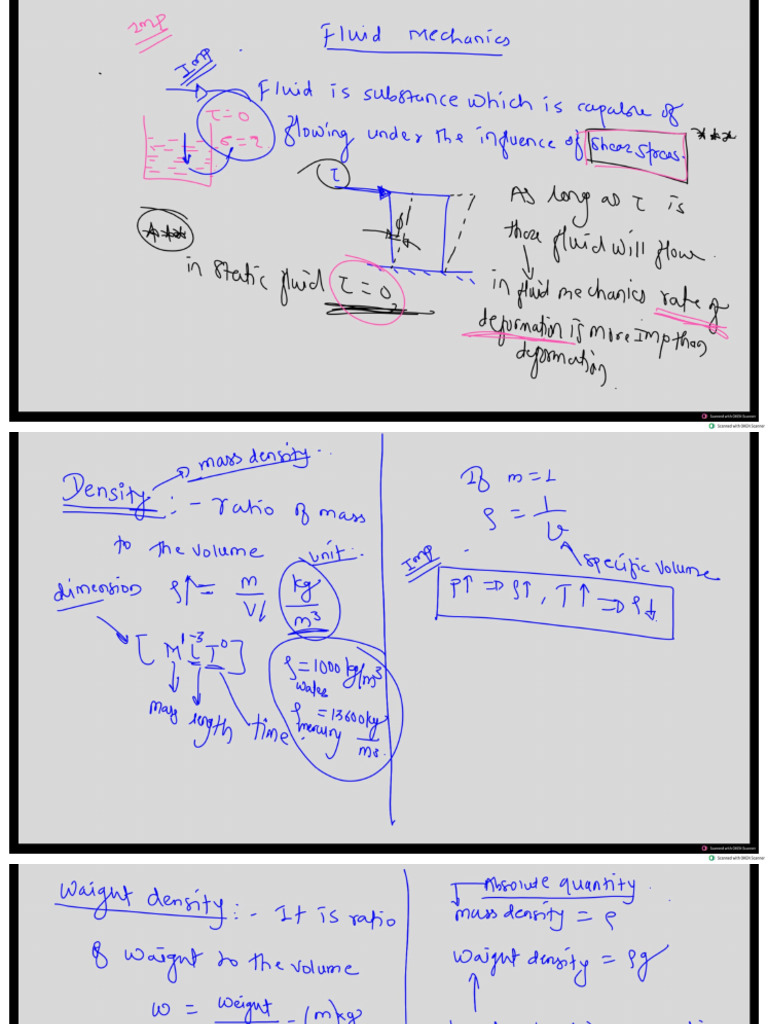 Imp
Fluid Mechanics
Imp
Fluid is substance which is capable of
flowing under the influence of shear stress.
τ=0
τ
As long as τ is
those fluid will flow.
in static fluid τ=0
in fluid mechanics rate of
deformation is more imp than
deformation
Scanned with OKEN Scanner
Scanned with OKEN Scanner
mass density
Density :- ratio of mass
to the volume
unit:
dimension ρ↑ = m/V↓ kg/m³
[M¹L⁻³T⁰]
mass length time
ρ water = 1000 kg/m³
ρ mercury = 13600 kg/m³
If m=1
ρ = 1/v
specific volume
Imp
P↑ ⇒ ρ↑, T↑ ⇒ ρ↓
Scanned with OKEN Scanner
Scanned with OKEN Scanner
Waight density :- It is ratio
of waight to the volume
w = weight
Absolute quantity
mass density = ρ
waight density = ρg